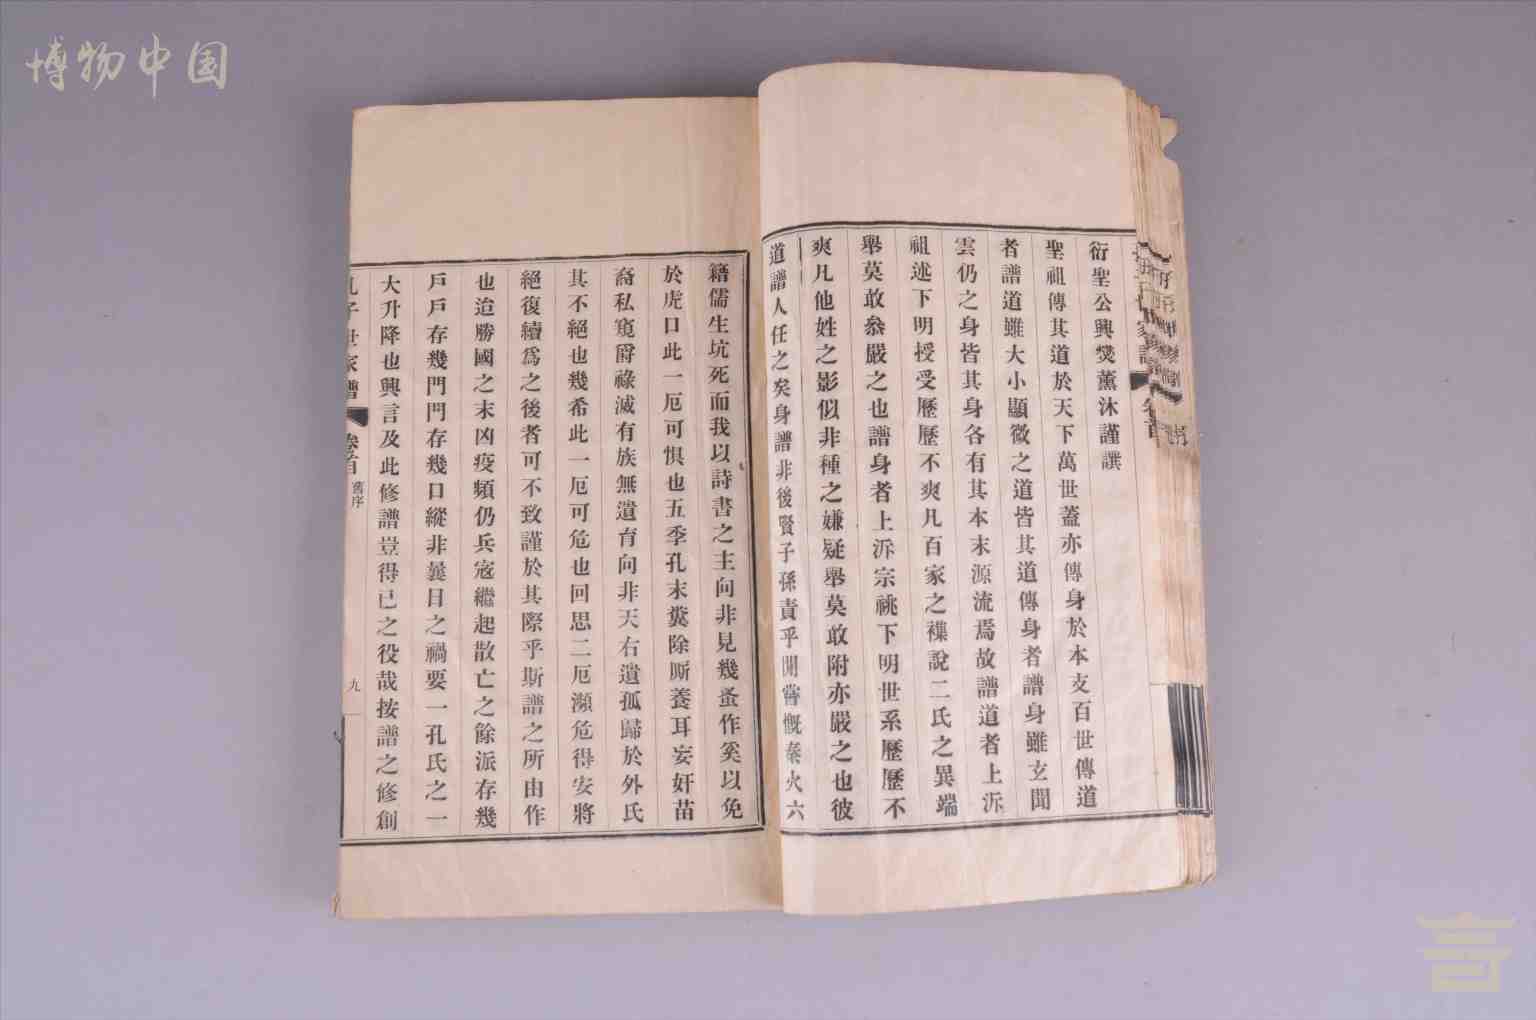 博物中国
衍聖公興燮薰沐謹譔
聖祖傳其道於天下萬世蓋亦傳身於本支百世傳道
者譜道雖大小顯微之道皆其道傳身者譜身雖玄聞
雲仍之身皆其身各有其本末源流焉故譜道者上泝
祖述下明授受歷歷不爽凡百家之襍說二氏之異端
舉莫敢叅嚴之也譜身者上泝宗祧下明世系歷歷不
爽凡他姓之影似非種之嫌疑舉莫敢附亦嚴之也彼
道譜人任之矣身譜非後賢子孫責乎閒嘗慨秦火六
籍儒生坑死而我以詩書之主向非見幾蚤作奚以免
於虎口此一厄可懼也五季孔末糞除厮養耳妄奸苗
裔私窺爵祿滅有族無遺育向非天右遺孤歸於外氏
其不絕也幾希此一厄可危也回思二厄瀕危得安將
絕復續為之後者可不致謹於其際乎斯譜之所由作
也迨勝國之末凶疫頻仍兵寇繼起散亡之餘派存幾
戶戶存幾門門存幾口縱非曩日之禍要一孔氏之一
大升降也興言及此修譜豈得已之役哉按譜之修創
孔子世家譜 卷首 舊序 九